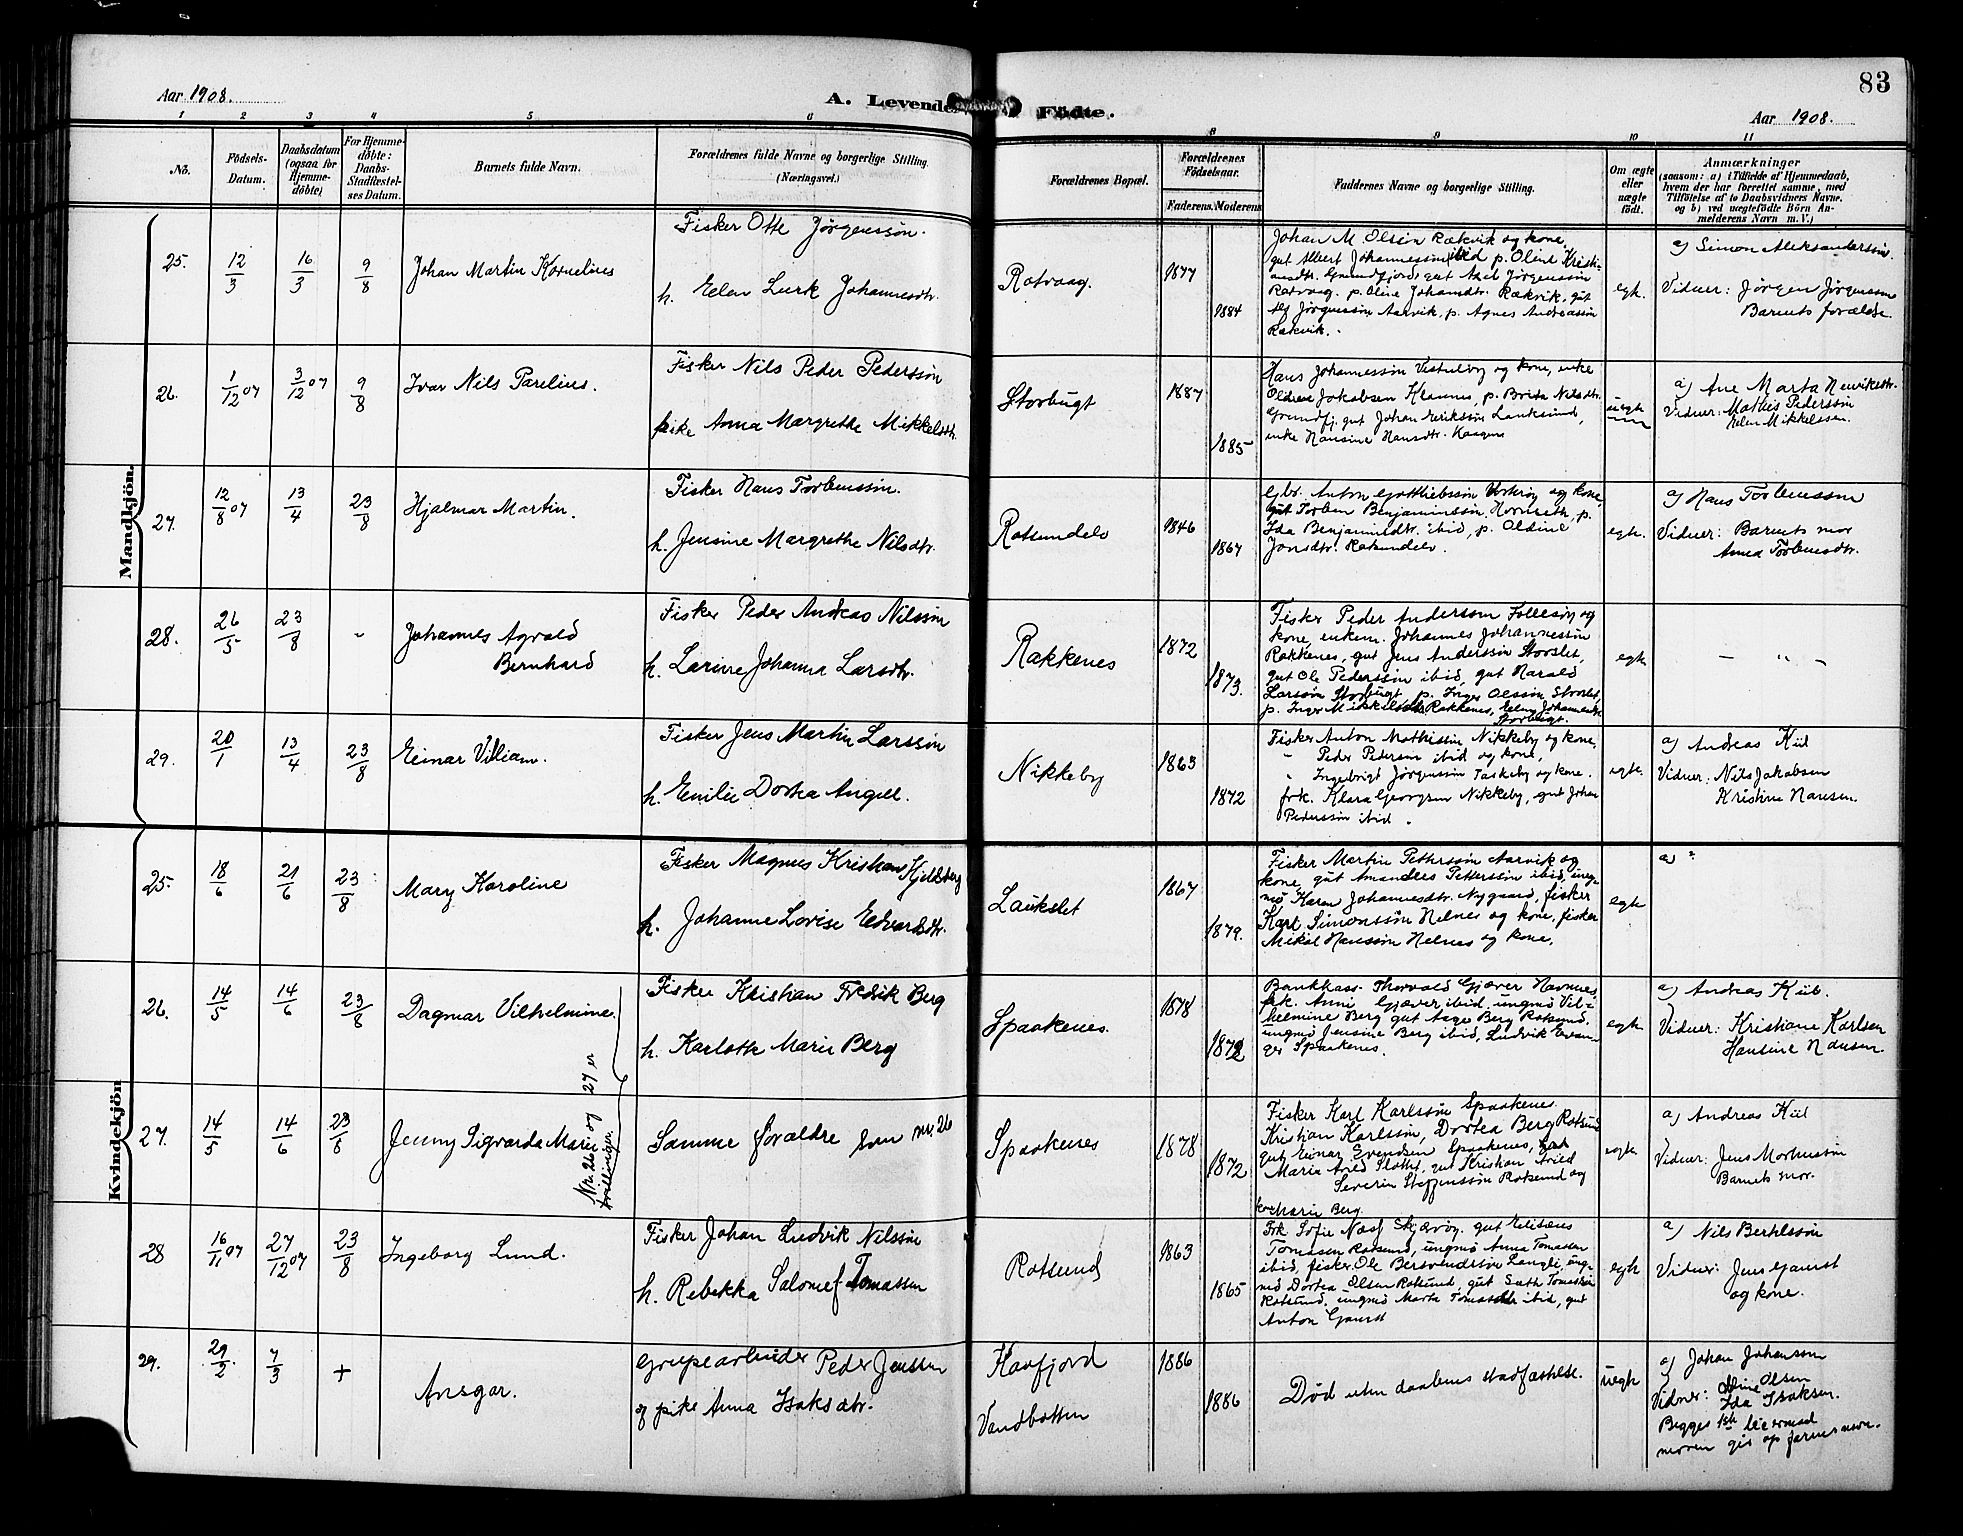 83
Aar 1908.
A. Levende Födte.
Aar 1908.
1 2 3 4 5 6 8 9 10 11
No.
Födsels-
Datum.
Daabsdatum
(ogsaa for
Hjemme-
döbte)
For Hjemme-
döbte:
Daabs-
Stadfæstel-
ses Datum.
Barnets fulde Navn.
Forældrenes fulde Navne og borgerlige Stilling.
(Næringsvei.)
Forældrenes Bopæl.
Forældrenes
Födselsaar.
Faderens. Moderens
Faddernes Navne og borgerlige Stilling.
Om ægte
eller
uægte
født.
Anmærkninger
(saasom: a) i Tilfælde af Hjemmedaab,
hvem der har forrettet samme, med
Tilföielse af to Daabsvidners Navne,
og b) ved uægtefödte Börn An-
melderens Navn m. V.)
Mandkjön.
25.
12/3
16/3
9/8
Johan Martin Kornelius
Fisker Otto Jørgenssøn.
h. Elen Lurk Johannesdtr.
Rotvaag.
1877
1884
Johan M Olsen Rækvik og kone,
gut Albert Johannessøn ibid p. Oline Kristi-
ansdtr. Grundfjord, gut Axel Jørgenssøn
Rotvaag. p. Oline Johansdtr. Rækvik, gut
Jørgenssøn Aarvik, p. Agnes Andreassøn
Rækvik.
egt.
a) Simon Aleksanderssøn.
Vidner: Jørgen Jørgenssøn
Barnets forældre.
26.
1/12 07
3/12 07
9/8
Ivar Nils Parelius.
Fisker Nils Peder Pederssøn
pike Anna Margrethe Mikkelsdtr.
Storbugt
1887
1885
Hans Johannessøn og kone, enke
Jakobsen p. Brita Nilsdtr.
Grundfj. gut Johan Erikssøn Lauksund,
enke Hansine Hansdtr. Kaagen
uegte
a) Ane Marta Henriksdtr.
Vidner: Mathis Pederssøn
Elen Mikkelssen.
27.
12/8 07
13/4
23/8
Hjalmar Martin.
Fisker Hans Torbenssøn.
h. Jensine Margrethe Nilsdtr.
Rotsundelv
1846
1867
Gbr. Anton Gottliebssøn og kone,
gut Torben Benjaminssøn p.
Ida Benjaminsdtr. ibid, p. Oldine
Jonsdtr. Rotsundelv.
egte.
a) Hans Torbenssøn
Vidner: Barnets mor
Anna Torbensdtr.
28.
26/5
23/8
-
Johannes Agvald
Bernhard
Fisker Peder Andreas Nilssøn
h. Larine Johanna Larsdtr.
Rakkenes
1872
1873.
Fisker Peder Anderssøn Follesøy og
kone, enkem. Johannes Johannessøn
Rakkenes, gut Jens Anderssøn Storslet,
gut Ole Pederssøn ibid, gut Harald
Larssøn Storbugt, p. Inger Olssøn Storslet,
p. Inger Mikkelsdtr. Rakkenes, Johannesdtr.
Storbugt.
egte
- " -
29.
20/1
13/4
23/8
Einar Villiam.
Fisker Jens Martin Larssøn
h. Emilie Dortea Angell.
Nikkeby
1863
1872
Fisker Anton Mathissøn, Nikkeby og kone,
" Peder Pedersen ibid og kone,
" Ingebrigt Jørgenssøn Taskeby og kone.
frk. Klara Georgsen Nikkeby, gut Johan
Pederssøn ibid.
egte.
a) Andreas Kiil
Vidner: Nils Jakobsen
Kristine Hansen.
Kvindekjön
25.
18/6
21/6
23/8
Mary Karoline
Fisker Magnus Kristian Hjellberg
h. Johanne Lovise Edvardsdtr.
Laukslet
1867
1879.
Fisker Martin Petterssøn Aarvik og
kone, gut Amandus Petterssøn ibid, ung-
mø Karen Johannesdtr. Nygaard, fisker
Karl Simonssøn Helnes og kone, fisker
Mikal Hanssøn Helnes og kone.
egte
a) ?
26.
14/5
14/6
23/8
Dagmar Vilhelmine.
Nr. 26 og 27 er
tvillinger.
Fisker Kristian Fredrik Berg
h. Karlotte Marie Berg
Spaakenes.
1878
1872
Bankkass. Thorvald Gjæver Havnnes,
frk. Anni Gjæver ibid, ungmø Vil-
helmine Berg gut Aage Berg Rotsund,
ungmø Jensine Berg ibid, Ludvik Evan-
ger Spaakenes.
egte
a) Andreas Kiil.
Vidner: Kristiane Karlsen
Hansine Hansen.
27.
14/5
14/6
23/8
Jenny Sigvarda Marie
Samme forældre som nr. 26
Spaakenes
1878
1872
Fisker Karl Karlssøn Spaakenes.
Kristian Karlssøn, Dortea Berg Rotsund
gut Einar Evendsen Spaakenes,
Maria Arild Slottet, gut Kristian Arild
Severin Steffenssøn Rotsund og
kone Marie Berg.
egte
a) Andreas Kiil
Vidner: Jens Morthenssøn
Barnets mor.
28
16/11 07
27/12 07
23/8
Ingeborg Lund.
Fisker Johan Ludvik Nilssøn
h. Rebekka Salomef Tomassen
Rotsund
1863
1865
Frk Sofie Næss Skjærvøy. gut Elisæus
Tomasen Rotsund, ungmø Anna Tomasen
ibid, fisker Ole Berventssøn Langli, ung-
mø Dortea Olsen Rotsund, gut Seth Tomassen
Rotsund, ungmø Marta Tomasdtr ibid, gut
Anton Gamst
egte
a) Nils Bertelssøn
Vidner: Jens Gamst
og kone.
29.
29/2
7/3
+
Ansgar.
Grubearbeider Peder Jenssen
og pike Anna Isaksdtr.
Kaafjord
Vandbotten
1886
1886
Død uten daabens stadfæstelse.
uegte
a) Johan Johanssøn
Vidner: Oline Olsen
Ida Isaksen.
Begges 1ste leiermaal
moren gir op farens navn.